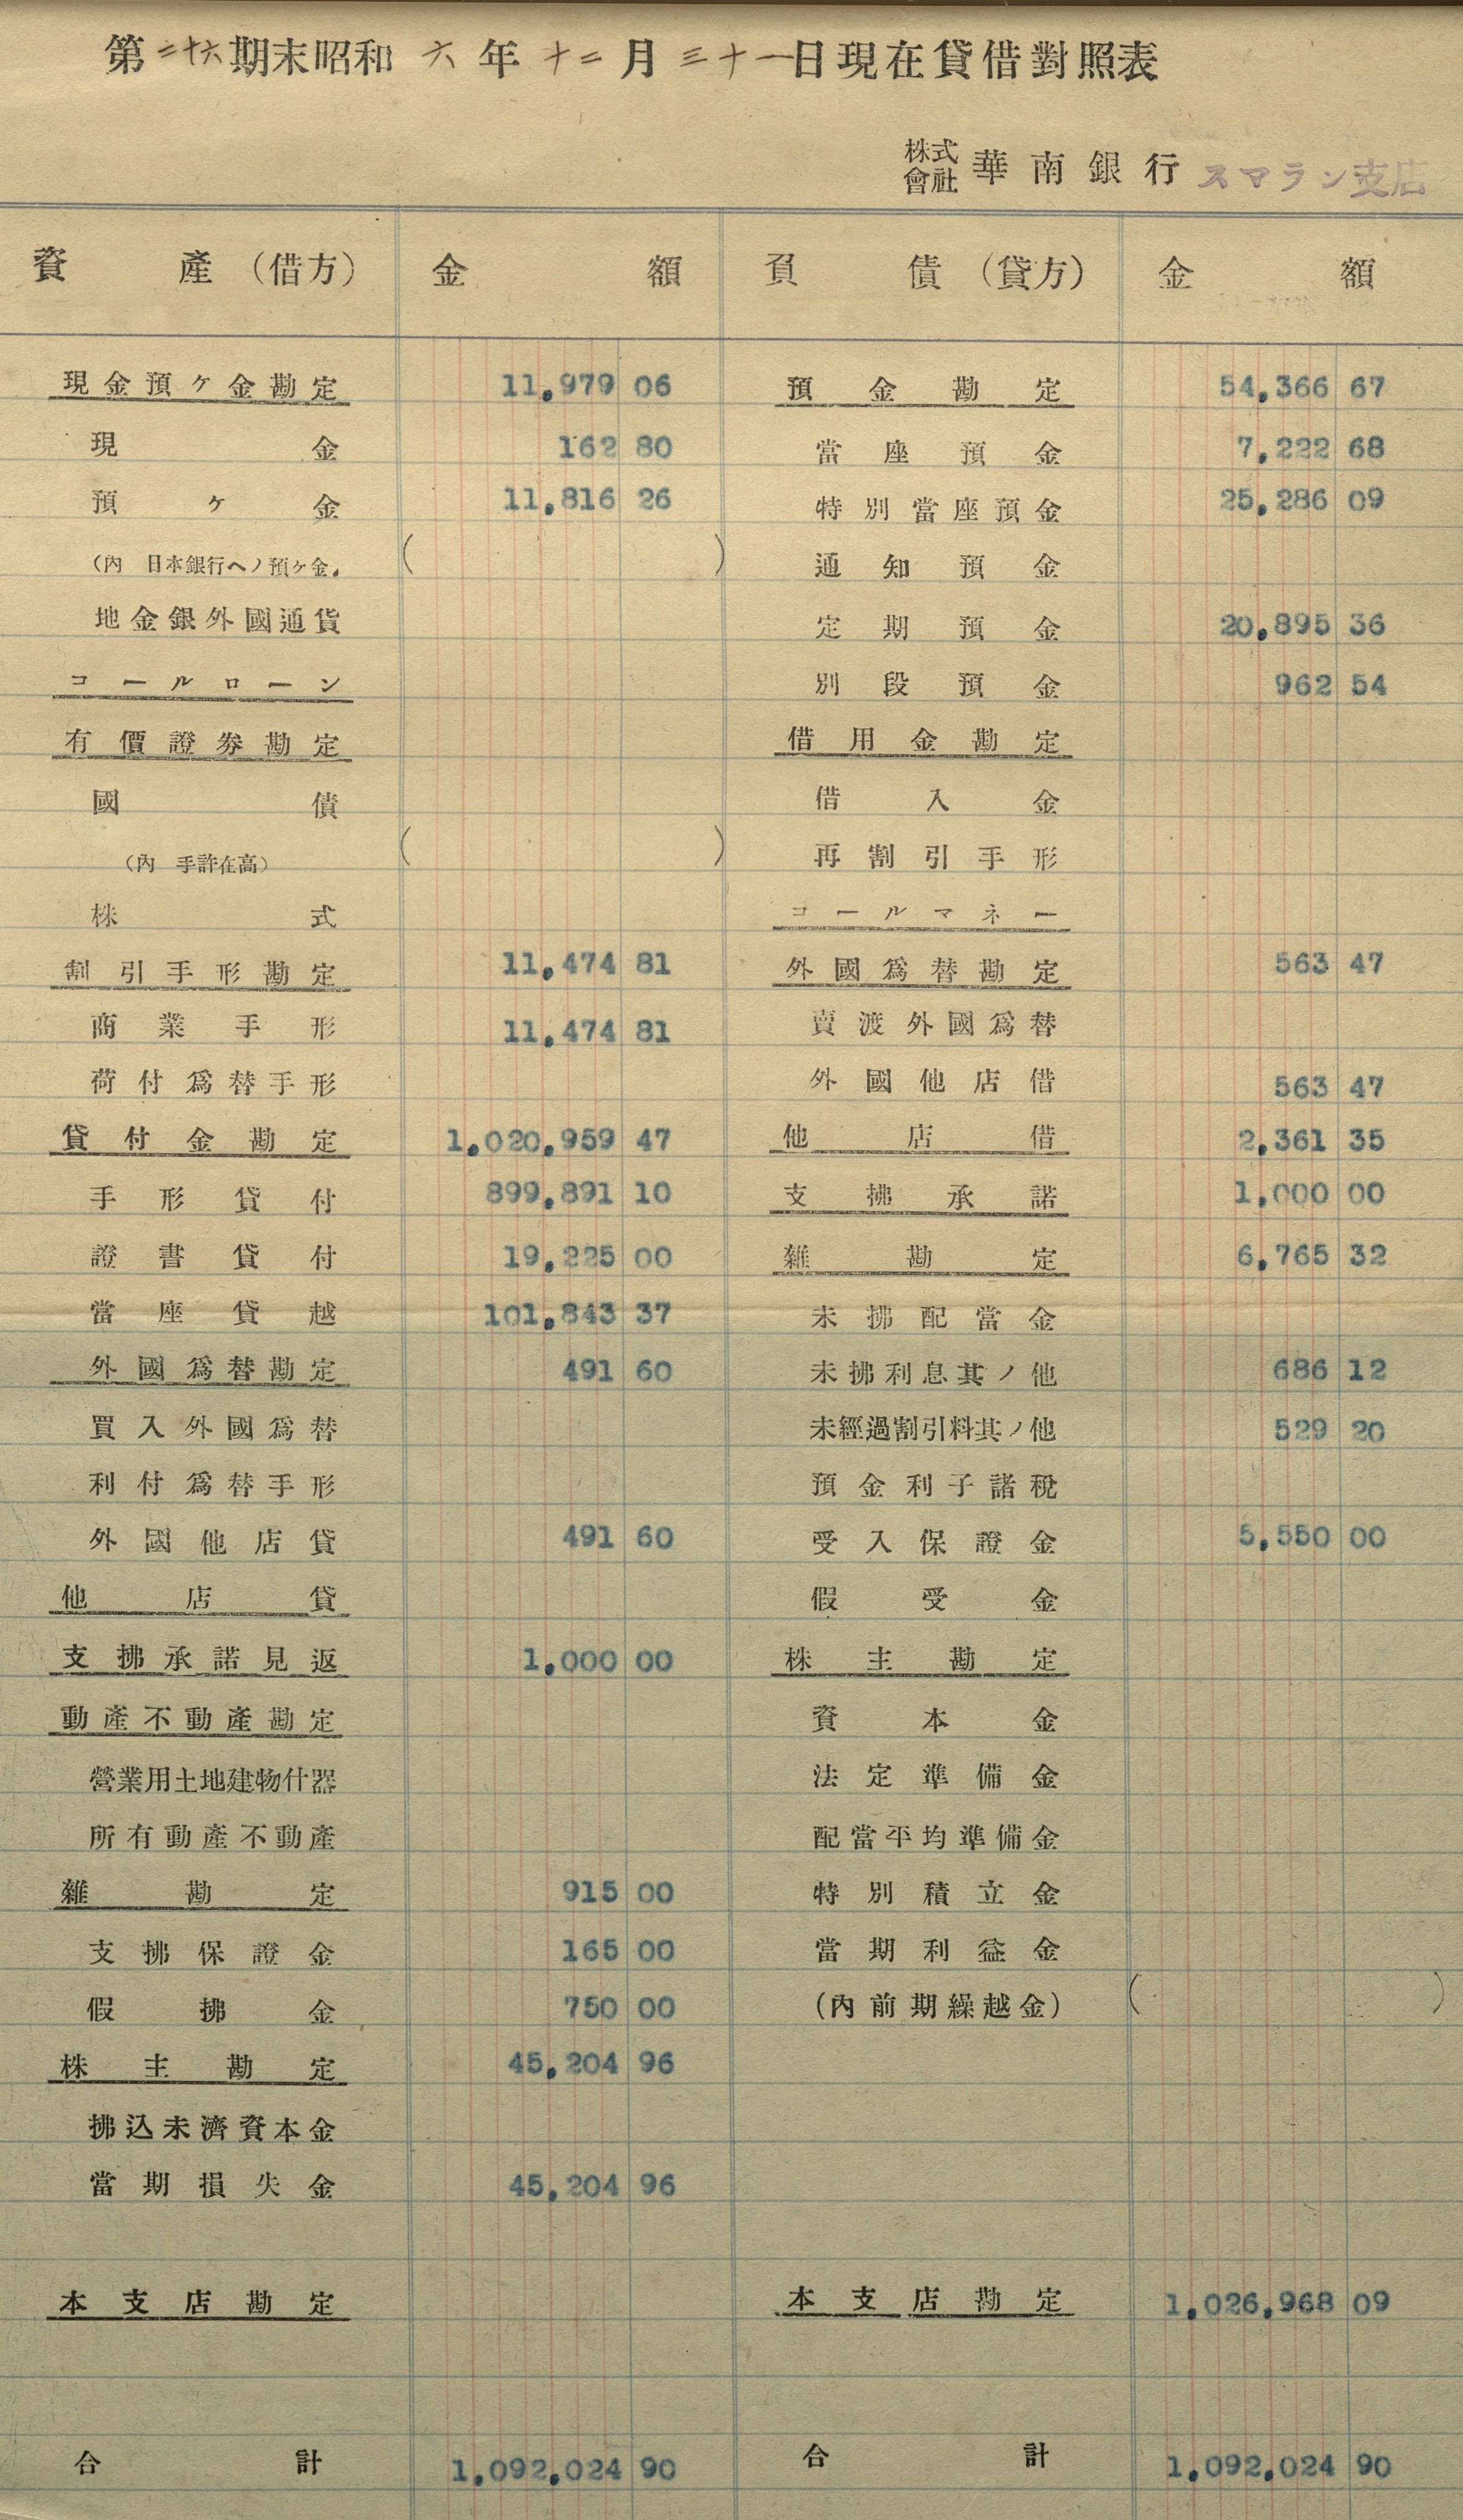 第二十六期末昭和六年十二月三十一日現在貸借對照表
株式會社 華南銀行 スマラン支店
資產（借方） 金額 負債（貸方） 金額
現金預ケ金勘定 11,979 06 預金勘定 54,366 67
現金 162 80 當座預金 7,222 68
預ケ金 11,816 26 特別當座預金 25,286 09
（內 日本銀行ヘノ預ケ金. （ ） 通知預金
地金銀外國通貨 定期預金 20,895 36
コールローン 別段預金 962 54
有價證券勘定 借用金勘定
國債 借入金
（內 手許在高） （ ） 再割引手形
株式 コールマネー
割引手形勘定 11,474 81 外國爲替勘定 563 47
商業手形 11,474 81 賣渡外國爲替
荷付爲替手形 外國他店借 563 47
貸付金勘定 1,020,959 47 他店借 2,361 35
手形貸付 899,891 10 支拂承諾 1,000 00
證書貸付 19,225 00 雜勘定 6,765 32
當座貸越 101,843 37 未拂配當金
外國爲替勘定 491 60 未拂利息其ノ他 686 12
買入外國爲替 未經過割引料其ノ他 529 20
利付爲替手形 預金利子諸稅
外國他店貸 491 60 受入保證金 5,550 00
他店貸 假受金
支拂承諾見返 1,000 00 株主勘定
動產不動產勘定 資本金
營業用土地建物什器 法定準備金
所有動產不動產 配當平均準備金
雜勘定 915 00 特別積立金
支拂保證金 165 00 當期利益金
假拂金 750 00 （內前期繰越金） （ ）
株主勘定 45,204 96
拂込未濟資本金
當期損失金 45,204 96
本支店勘定 本支店勘定 1,026,968 09
合計 1,092,024 90 合計 1,092,024 90